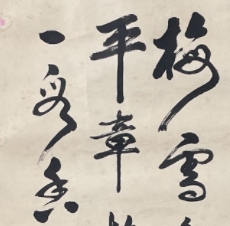 梅雪
平章
一段香